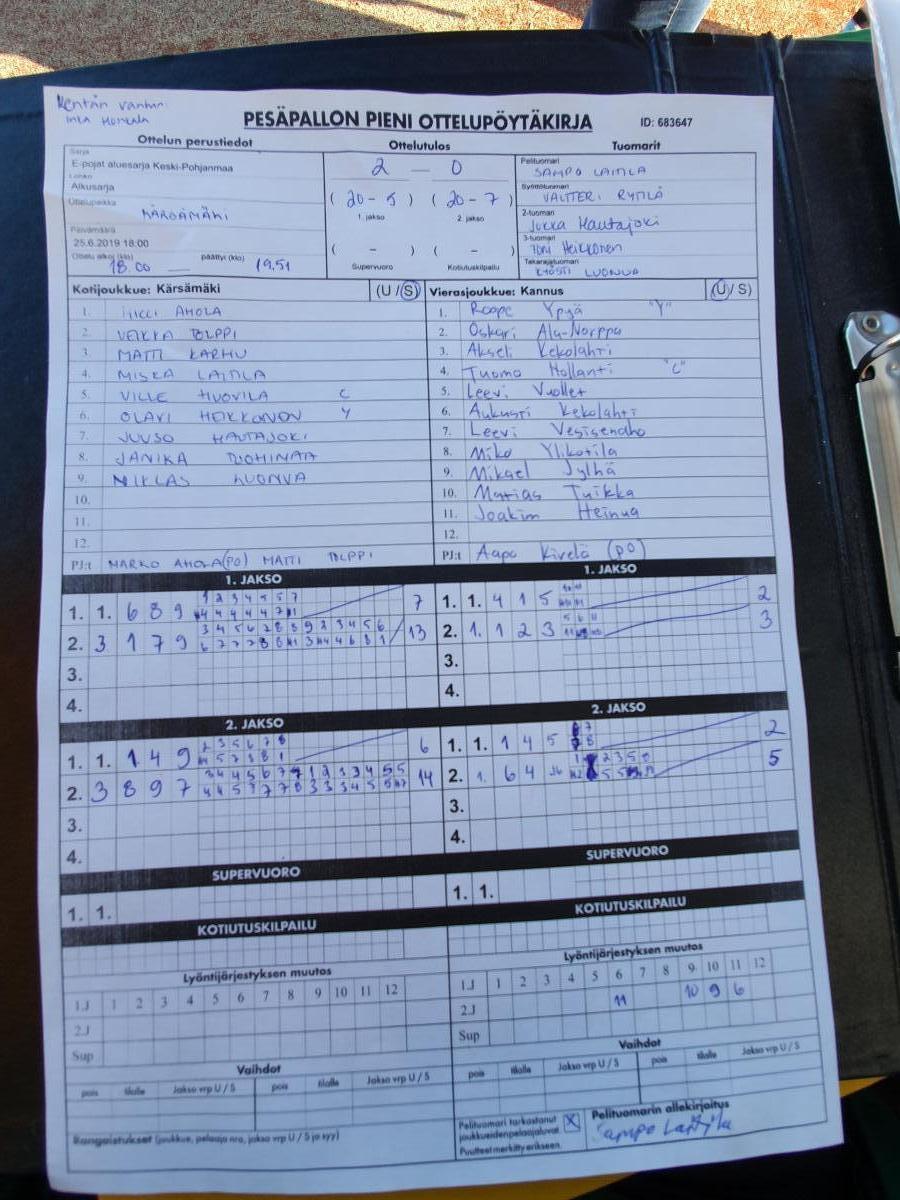 Kentän vanhin
PESÄPALLON PIENI OTTELUPÖYTÄKIRJA
ID: 683647
Ottelun perustiedot
Ottelutulos
Tuomarit
Sarja
E-pojat aluesarja Keski-Pohjanmaa
Lohko
Alkusarja
Ottelupaikka
KÄRSÄMÄKI
Päivämäärä
25.6.2019 18:00
Ottelu alkoi (klo) 18.00 päättyi (klo) 19.51
2 — 0
( 20 - 5 ) ( 20 - 7 )
1. jakso 2. jakso
( - ) ( - )
Supervuoro Kotiutuskilpailu
Pelituomari
SAMPO LAITILA
Syöttötuomari
VALTTERI RYTILÄ
2-tuomari
Jukka Hautajoki
3-tuomari
Toni Heikkonen
Takarajatuomari
KYÖSTI LUONUA
Kotijoukkue: Kärsämäki (U / S)
1. AHOLA
2. VEIKKA TOLPPI
3. MATTI KARHU
4. MISKA LAITILA
5. VILLE HUOVILA C
6. OLAVI HEIKKONEN Y
7. JUUSO HAUTAJOKI
8. JANIKA
9. NIKLAS LUONUA
10.
11.
12.
PJ:t MARKO AHOLA(PO) MATTI TOLPPI
Vierasjoukkue: Kannus (U / S)
1. Roope Ypyä "Y"
2. Oskari Ala-Norppa
3. Akseli Kekolahti
4. Tuomo Hollanti "C"
5. Leevi Vuollet
6. Aukusti Kekolahti
7. Leevi Vesisenaho
8. Miko Ylikotila
9. Mikael Jylhä
10. Matias Tuikka
11. Joakim Heinua
12.
PJ:t Aapo Kivelä (PO)
1. JAKSO
1. 1. 6 8 9 7
2. 3 1 7 9 13
3.
4.
1. JAKSO
1. 1. 4 1 5 2
2. 1. 1 2 3 3
3.
4.
2. JAKSO
1. 1. 1 4 9 6
2. 3 8 9 7 14
3.
4.
2. JAKSO
1. 1. 1 4 5 2
2. 1. 6 4 5
3.
4.
SUPERVUORO
1. 1.
SUPERVUORO
1. 1.
KOTIUTUSKILPAILU
KOTIUTUSKILPAILU
Lyöntijärjestyksen muutos
1.J 1 2 3 4 5 6 7 8 9 10 11 12
2.J
Sup
Lyöntijärjestyksen muutos
1.J 1 2 3 4 5 6 7 8 9 10 11 12
2.J 11 10 9 6
Sup
Vaihdot
pois tilalle Jakso vrp U / S pois tilalle Jakso vrp U / S
Vaihdot
pois tilalle Jakso vrp U / S pois tilalle Jakso vrp U / S
Rangaistukset (joukkue, pelaaja nro, jakso vrp U / S ja syy)
Pelituomari tarkastanut
joukkueiden pelaajaluvat. X
Puutteet merkitty erikseen.
Pelituomarin allekirjoitus
Sampo Laitila